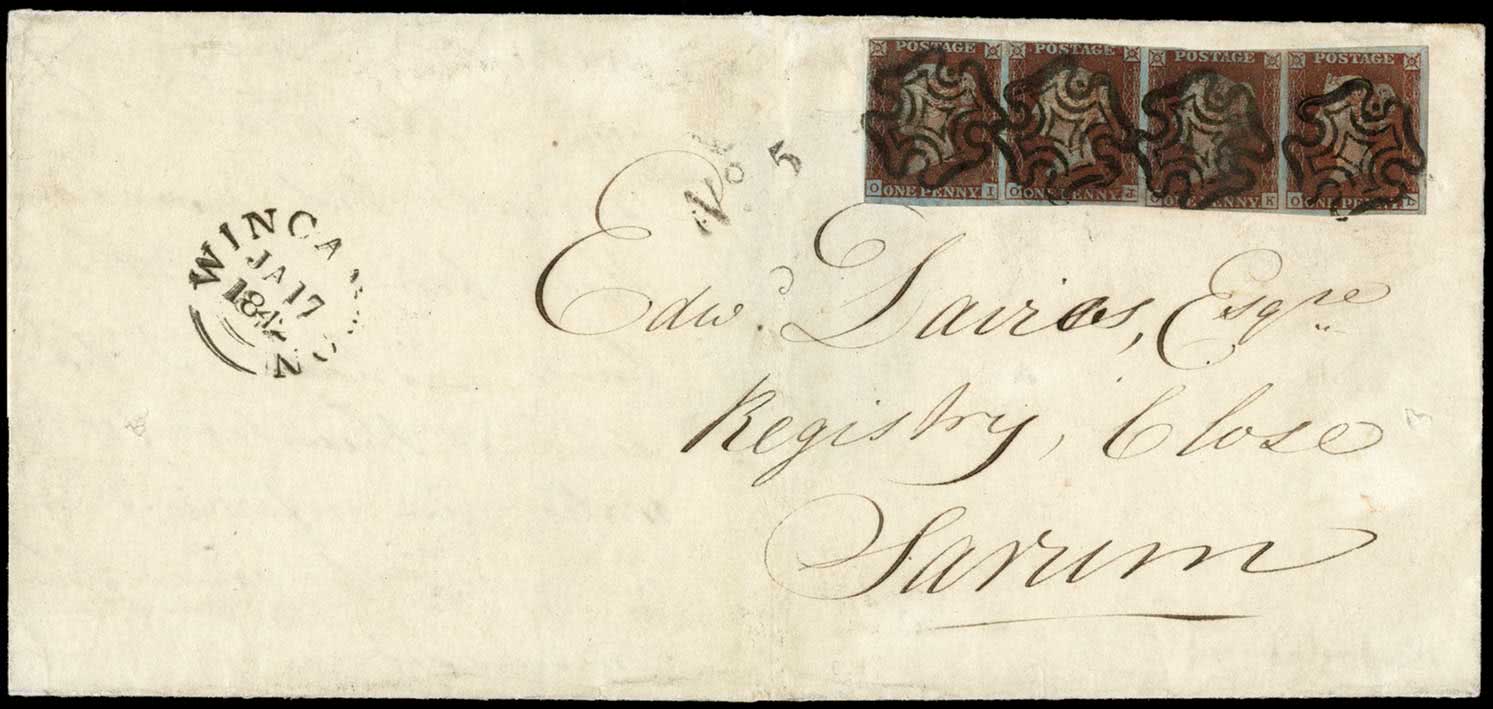 POSTAGE POSTAGE POSTAGE POSTAGE
O ONE PENNY I O ONE PENNY J O ONE PENNY K O ONE PENNY L
No 5
WINCA N
JA 17
184
Edwd. Davies, Esqre
Registry, Close
Sarum